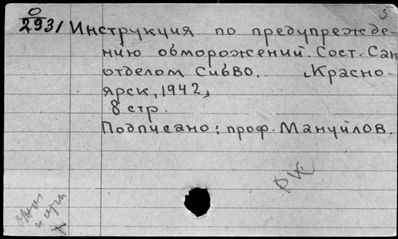 О
2931 Инструкция по предупрежде-
нию обморожений. Сост. Сан
отделом СибВО. Красно-
ярск, 1942,
8 стр.
Подписано: проф. Мануйлов.
РЖ
5